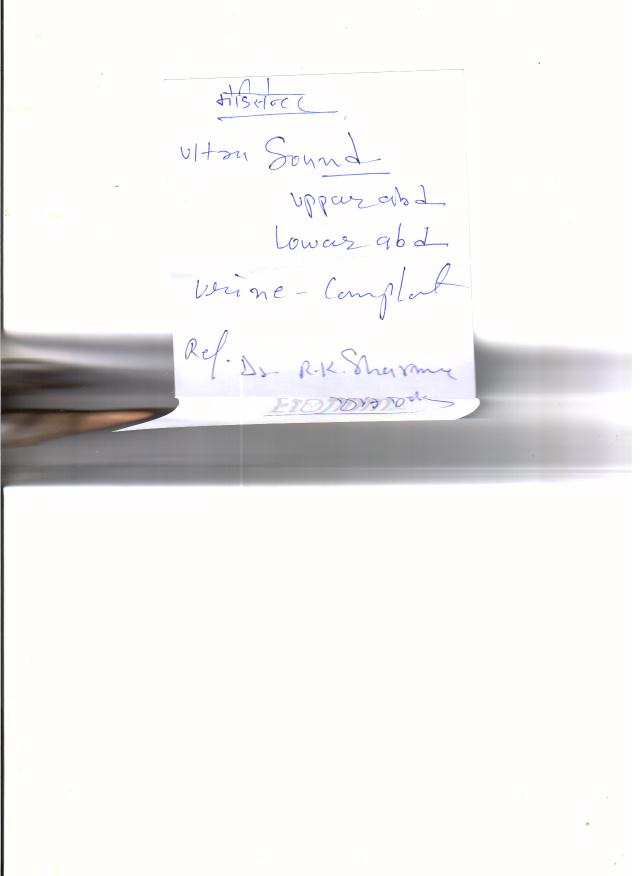 Ultra Sound
uppar abd
Lowar abd
Urine - Complat
Ref. Dr. R.K. Sharma